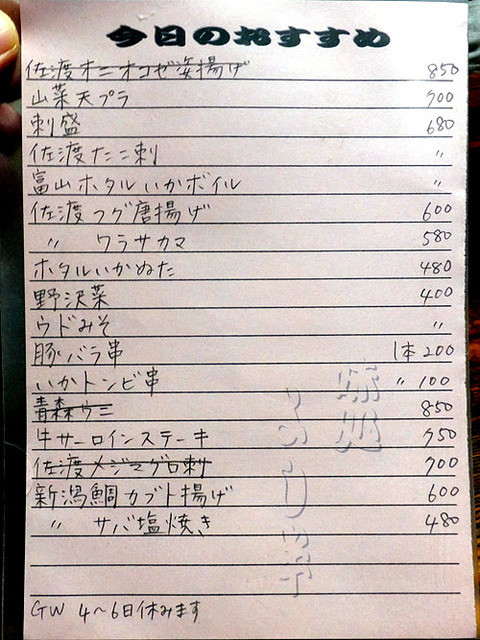 今日のおすすめ
佐渡オニオコゼ姿揚げ 850
山菜天プラ 700
刺盛 680
佐渡たこ刺 〃
富山ホタルいかボイル 〃
佐渡フグ唐揚げ 600
〃 ワラサカマ 580
ホタルいかぬた 480
野沢菜 400
ウドみそ 〃
豚バラ串 1本200
いかトンビ串 〃 100
青森ウニ 850
牛サーロインステーキ 750
佐渡メジマグロ刺 700
新潟鯛カブト揚げ 600
〃 サバ塩焼き 480
GW 4〜6日休みます